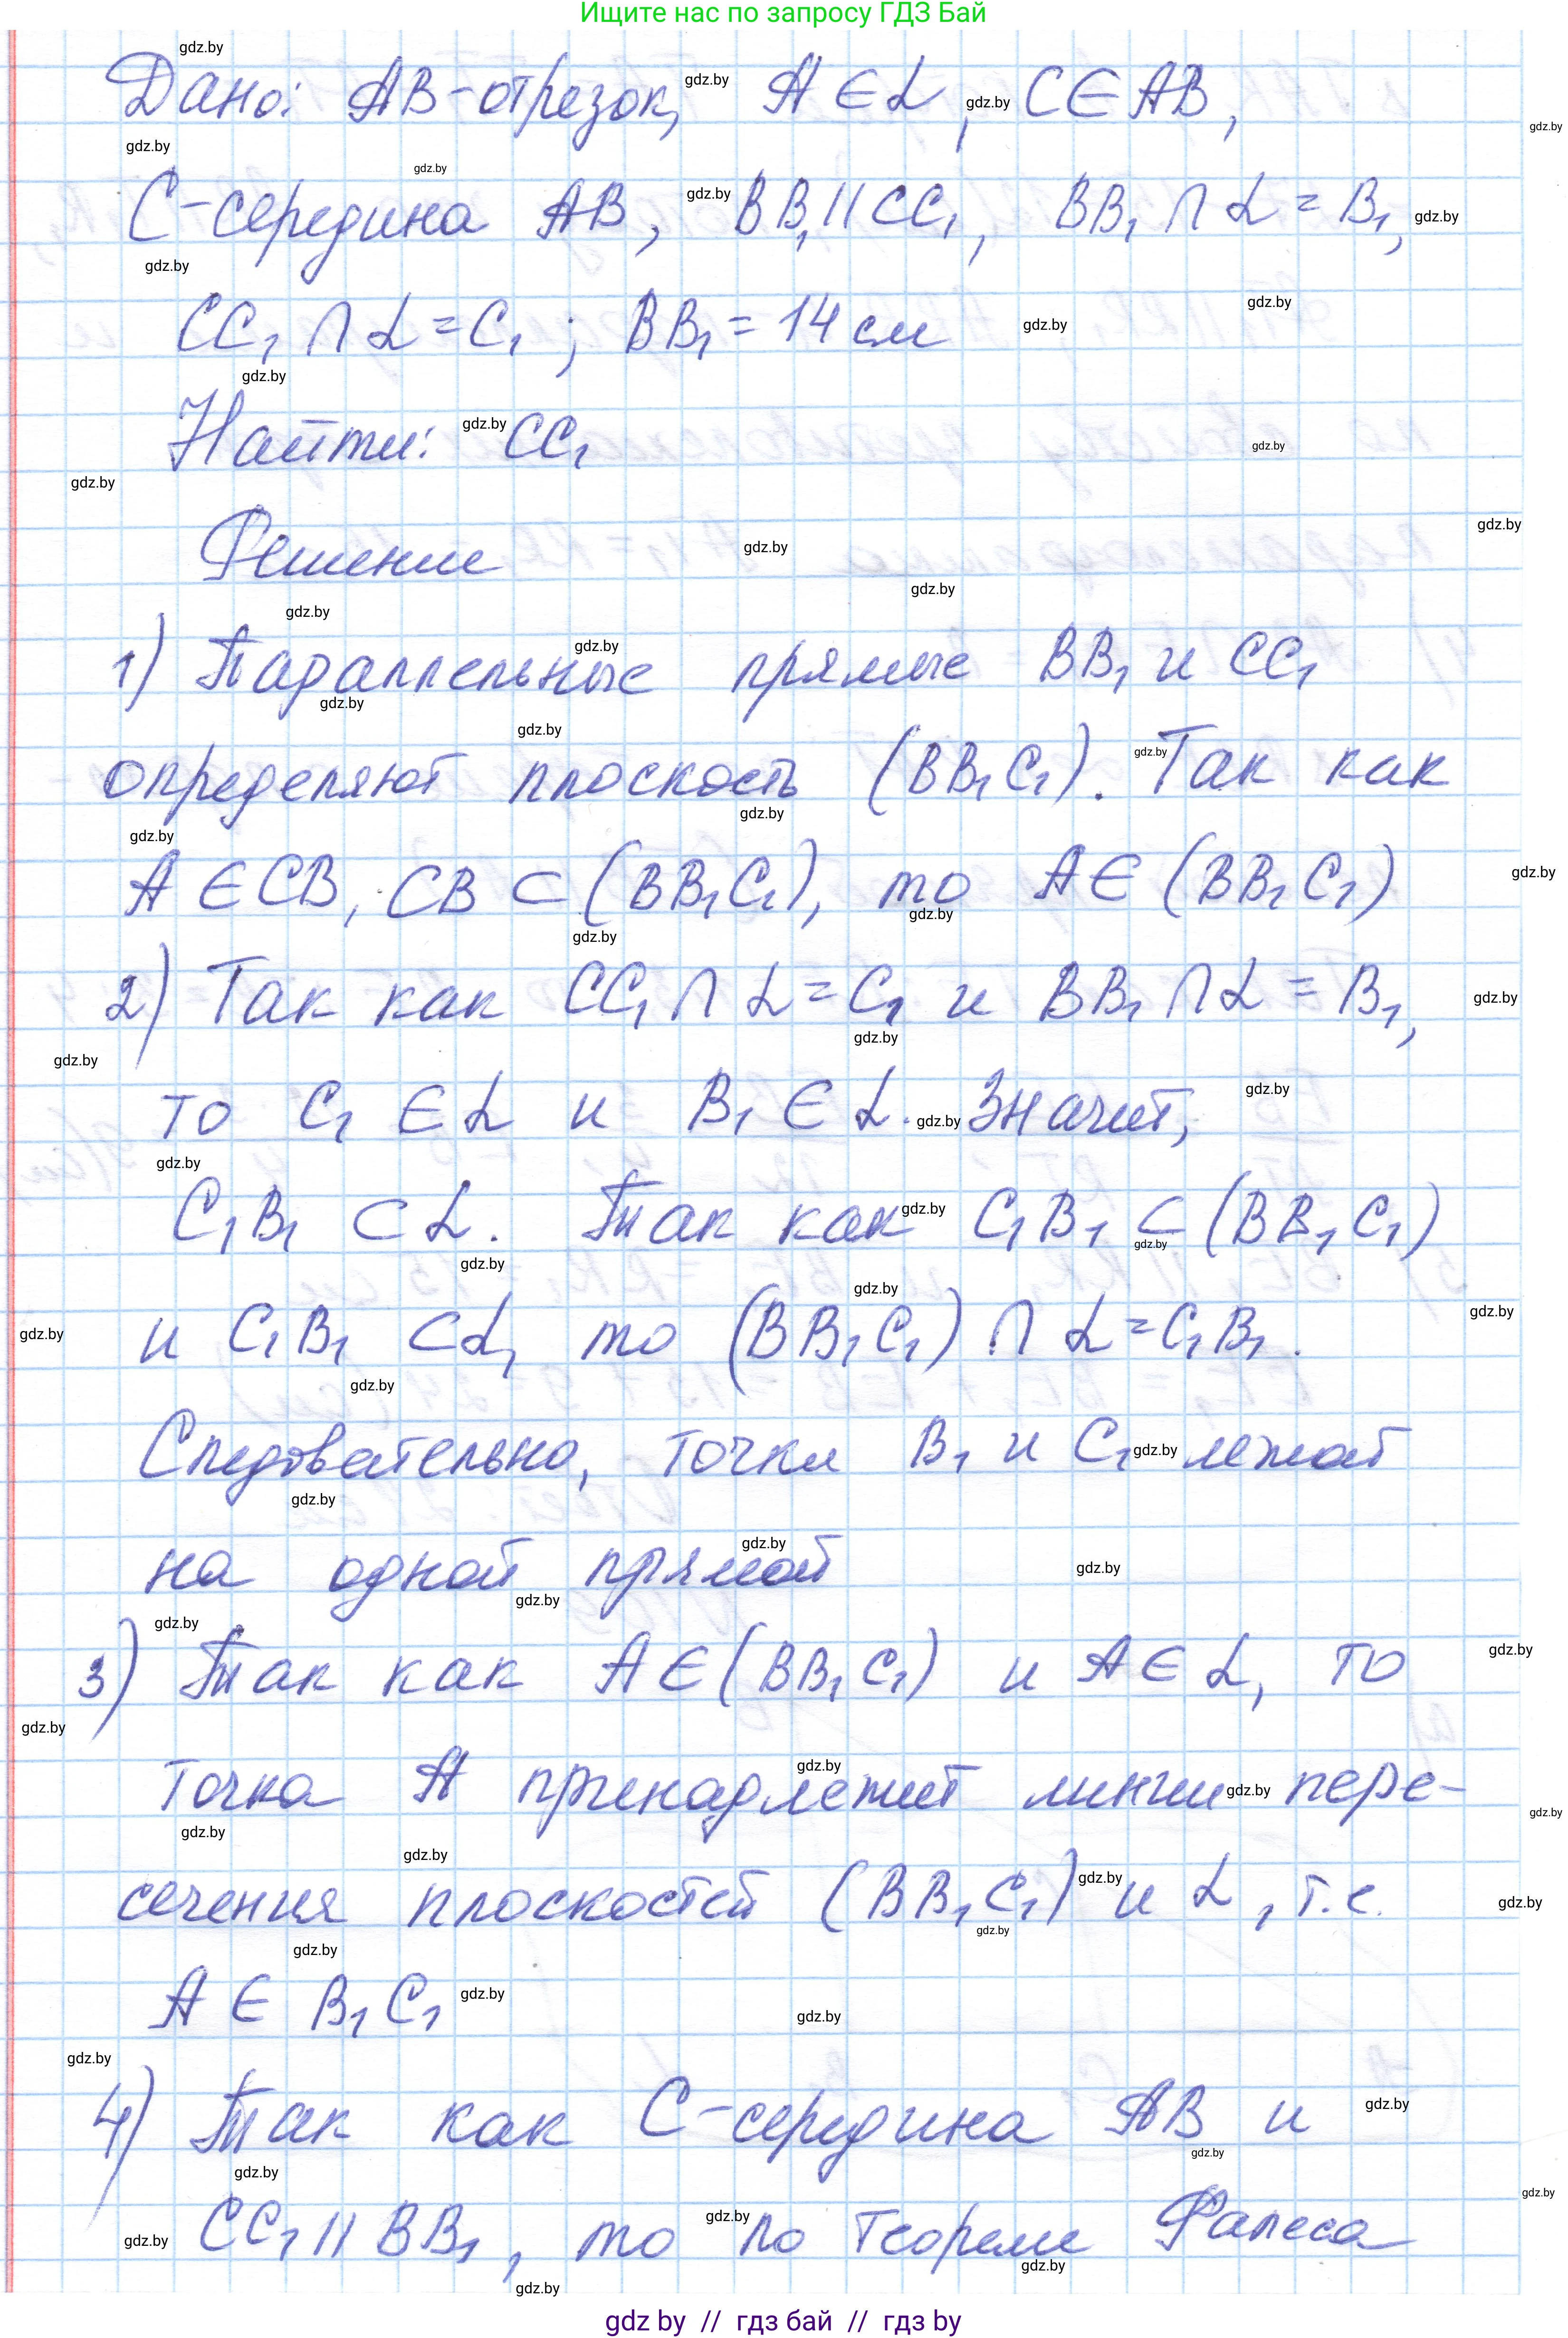 Ищите нас по запросу ГДЗ Бай
Дано: AB-отрезок, A ∈ α, C ∈ AB,
C-середина AB, BB₁ || CC₁, BB₁ ∩ α = B₁,
CC₁ ∩ α = C₁; BB₁ = 14 см
Найти: CC₁
Решение
1) Параллельные прямые BB₁ и CC₁
определяют плоскость (BB₁C₁). Так как
A ∈ CB, CB ⊂ (BB₁C₁), то A ∈ (BB₁C₁)
2) Так как CC₁ ∩ α = C₁ и BB₁ ∩ α = B₁,
то C₁ ∈ α и B₁ ∈ α. Значит,
C₁B₁ ⊂ α. Так как C₁B₁ ⊂ (BB₁C₁)
и C₁B₁ ⊂ α, то (BB₁C₁) ∩ α = C₁B₁.
Следовательно, точки B₁ и C₁ лежат
на одной прямой
3) Так как A ∈ (BB₁C₁) и A ∈ α, то
точка A принадлежит линии пере-
сечения плоскостей (BB₁C₁) и α, т.е.
A ∈ B₁C₁
4) Так как C-середина AB и
CC₁ || BB₁, то по теореме Фалеса
gdz by // гдз бай // гдз by